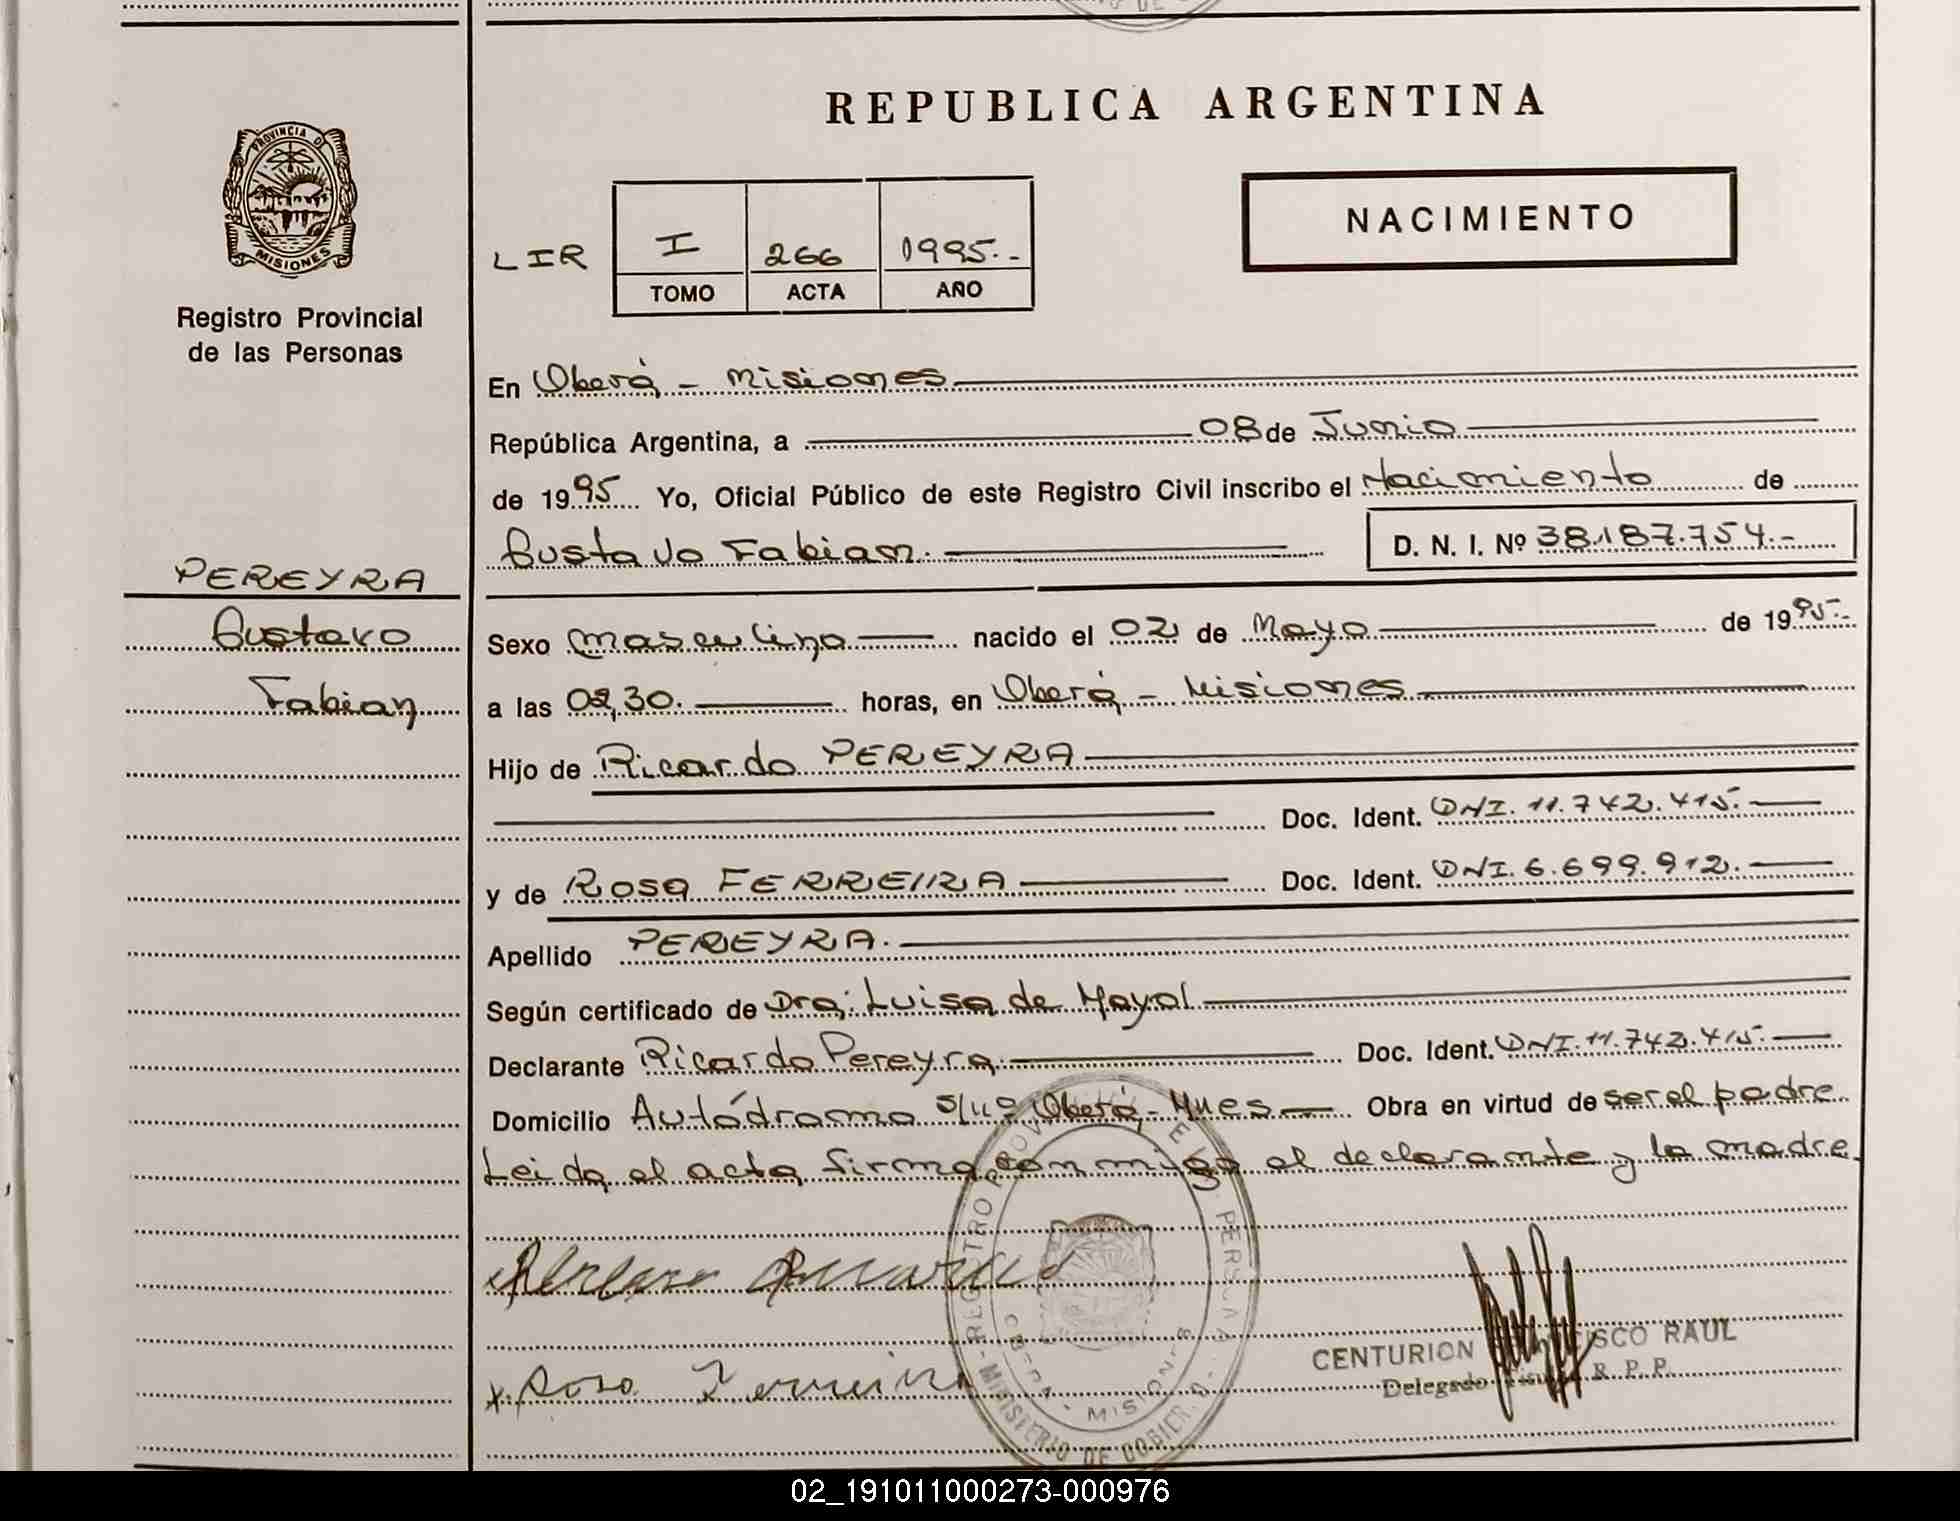 REPUBLICA ARGENTINA
PROVINCIA DE
MISIONES
Registro Provincial
de las Personas
NACIMIENTO
LIR I 266 1995.-
TOMO ACTA AÑO
En Oberá - Misiones
República Argentina, a 08 de Junio
de 1995 Yo, Oficial Público de este Registro Civil inscribo el Nacimiento de
Gustavo Fabian. D. N. I. Nº 38.187.754.-
PEREYRA
Gustavo
Fabian
Sexo masculino nacido el 02 de Mayo de 1995.-
a las 02,30. horas, en Oberá - Misiones
Hijo de Ricardo PEREYRA
Doc. Ident. DNI. 11.742.415.
y de Rosa FERREIRA Doc. Ident. DNI. 6.699.912.
Apellido PEREYRA.
Según certificado de Dra: Luisa de Mayol
Declarante Ricardo Pereyra Doc. Ident. DNI. 11.742.415.
Domicilio Autódromo s/nº Oberá - Mnes Obra en virtud de ser el padre
Leida el acta firma conmigo el declarante y la madre.
Rosa Ferreira
CENTURION RAUL
Delegado R. P. P.
OBERA - MISIONES
MINISTERIO DE GOBIERNO
02_191011000273-000976